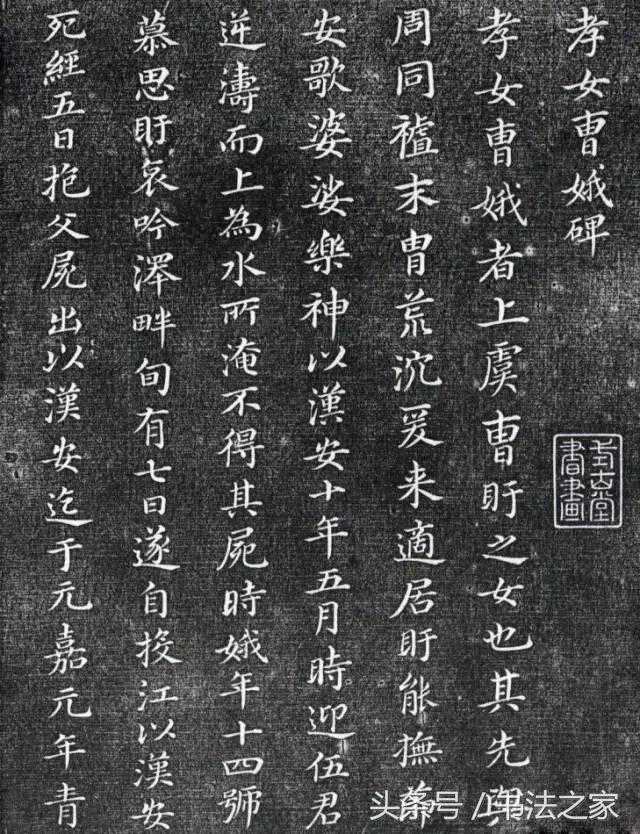 孝女曹娥碑
孝女曹娥者上虞曹盱之女也其先
周同祖末胄荒沉爰来適居盱能撫
安歌婆娑樂神以漢安十年五月時迎伍君
逆濤而上為水所淹不得其屍時娥年十四號
慕思盱哀吟澤畔旬有七日遂自投江以漢安
死經五日抱父屍出以漢安迄于元嘉元年青
堂
書畫
头条号 / 书法之家